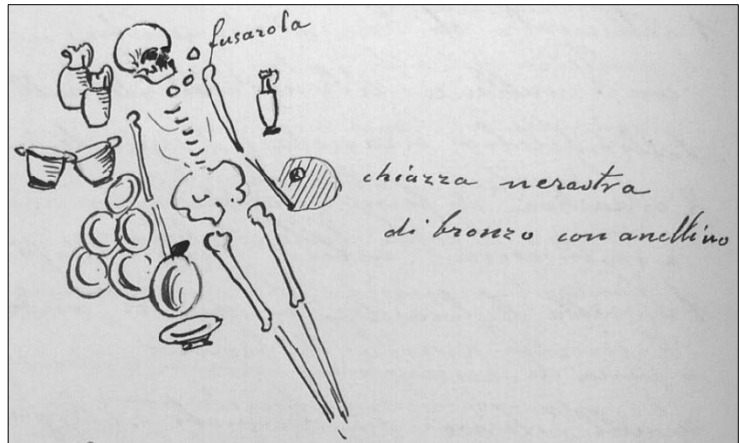 fusarola
chiazza nerastra
di bronzo con anellino